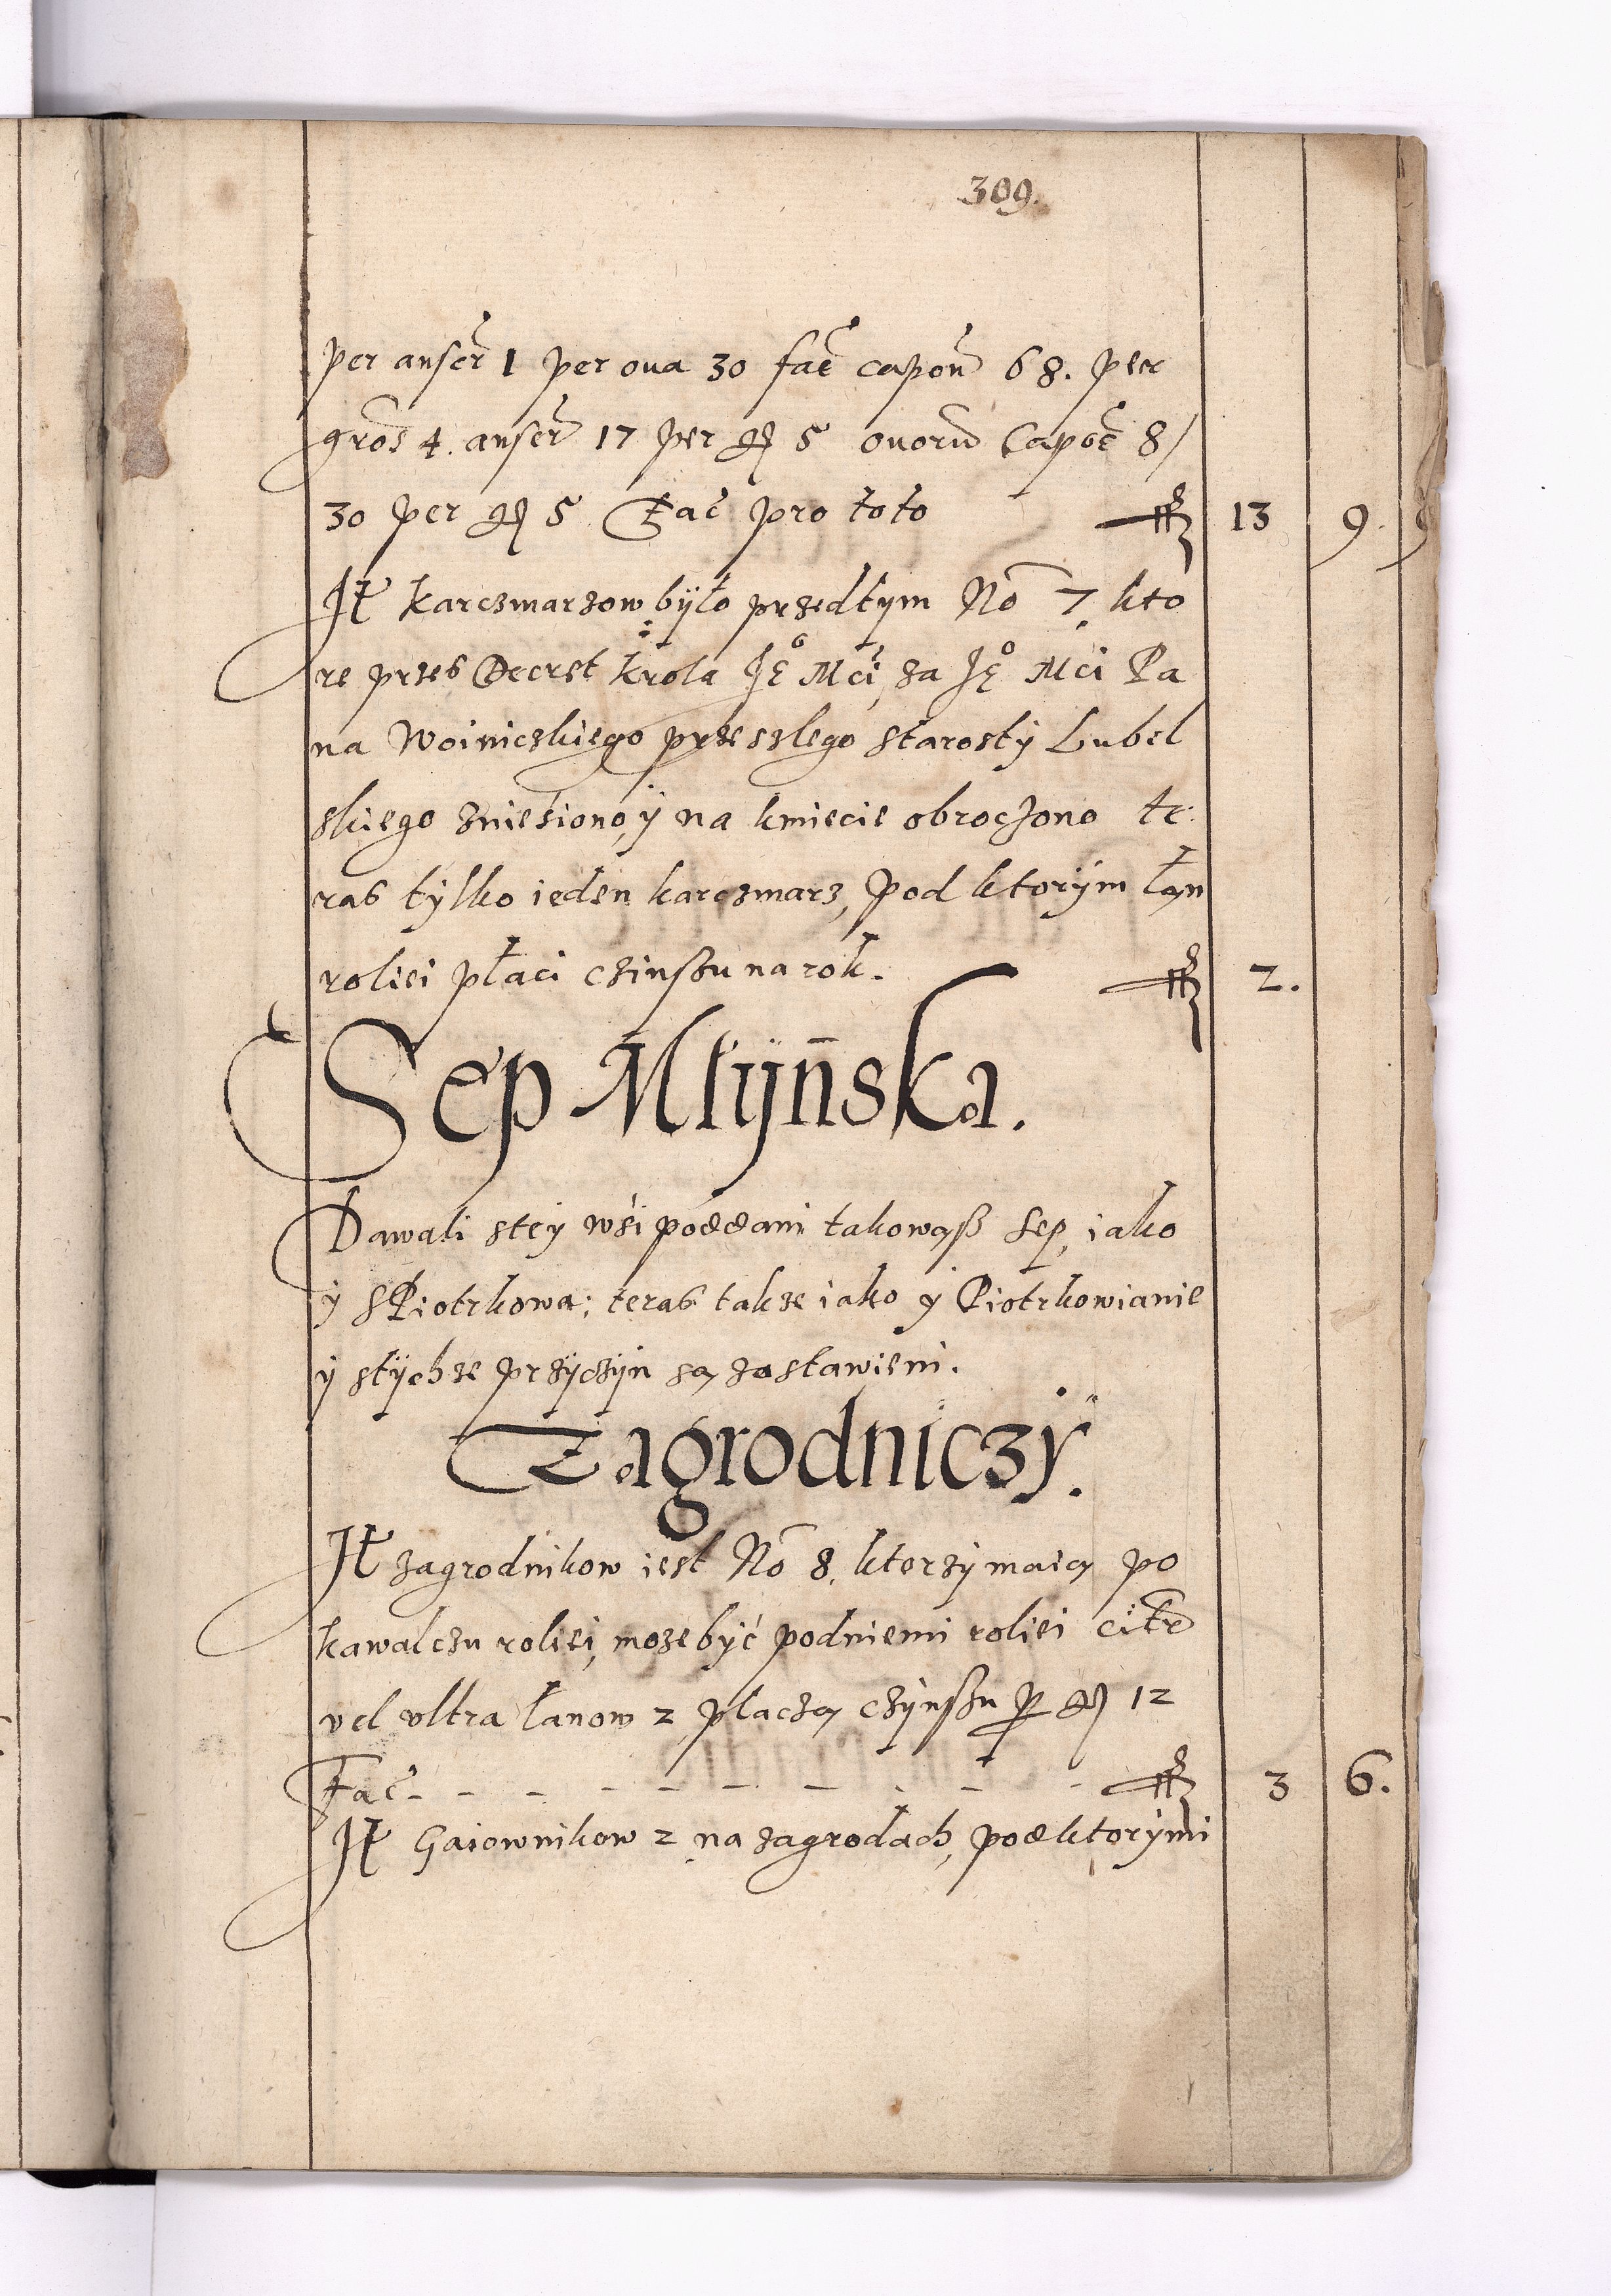 309.
per anser 1 per oua 30 fac capon 68. per
gros 4. anser 17 per gr 5 ouoru Capoc 8/
30 per gr 5 Fac pro toto fl 13 9.
It karczmarzow było przedtym No 7. kto
re przes Decret Krola Je° Mci, za Je° Mci Pa
na Woinickiego przeszlego starosty Lubel
skiego zniesiono, ÿ na kmiecie obroczono te:
ras tylko ieden karczmarz, pod ktorym łan
roliei płaci czinszu na rok. fl 2.
Sep Młÿńska.
Dawali stey wśi poddani takowąß sep, iako
ÿ s Piotrkowa; teras takze iako ÿ Piotrkowianie
ÿ stÿchze przÿczÿn są zostawieni.
Zagrodniczÿ.
It zagrodnikow iest No 8. ktorzy maią po
kawalczu roliei, moze być pod niemi roliei citr
vel vltra łanow 2 płaczą czÿnszu p gr 12
Fac - - - - - - - - fl 3 6.
It Gaiownikow 2 na zagrodach, pod ktorymi